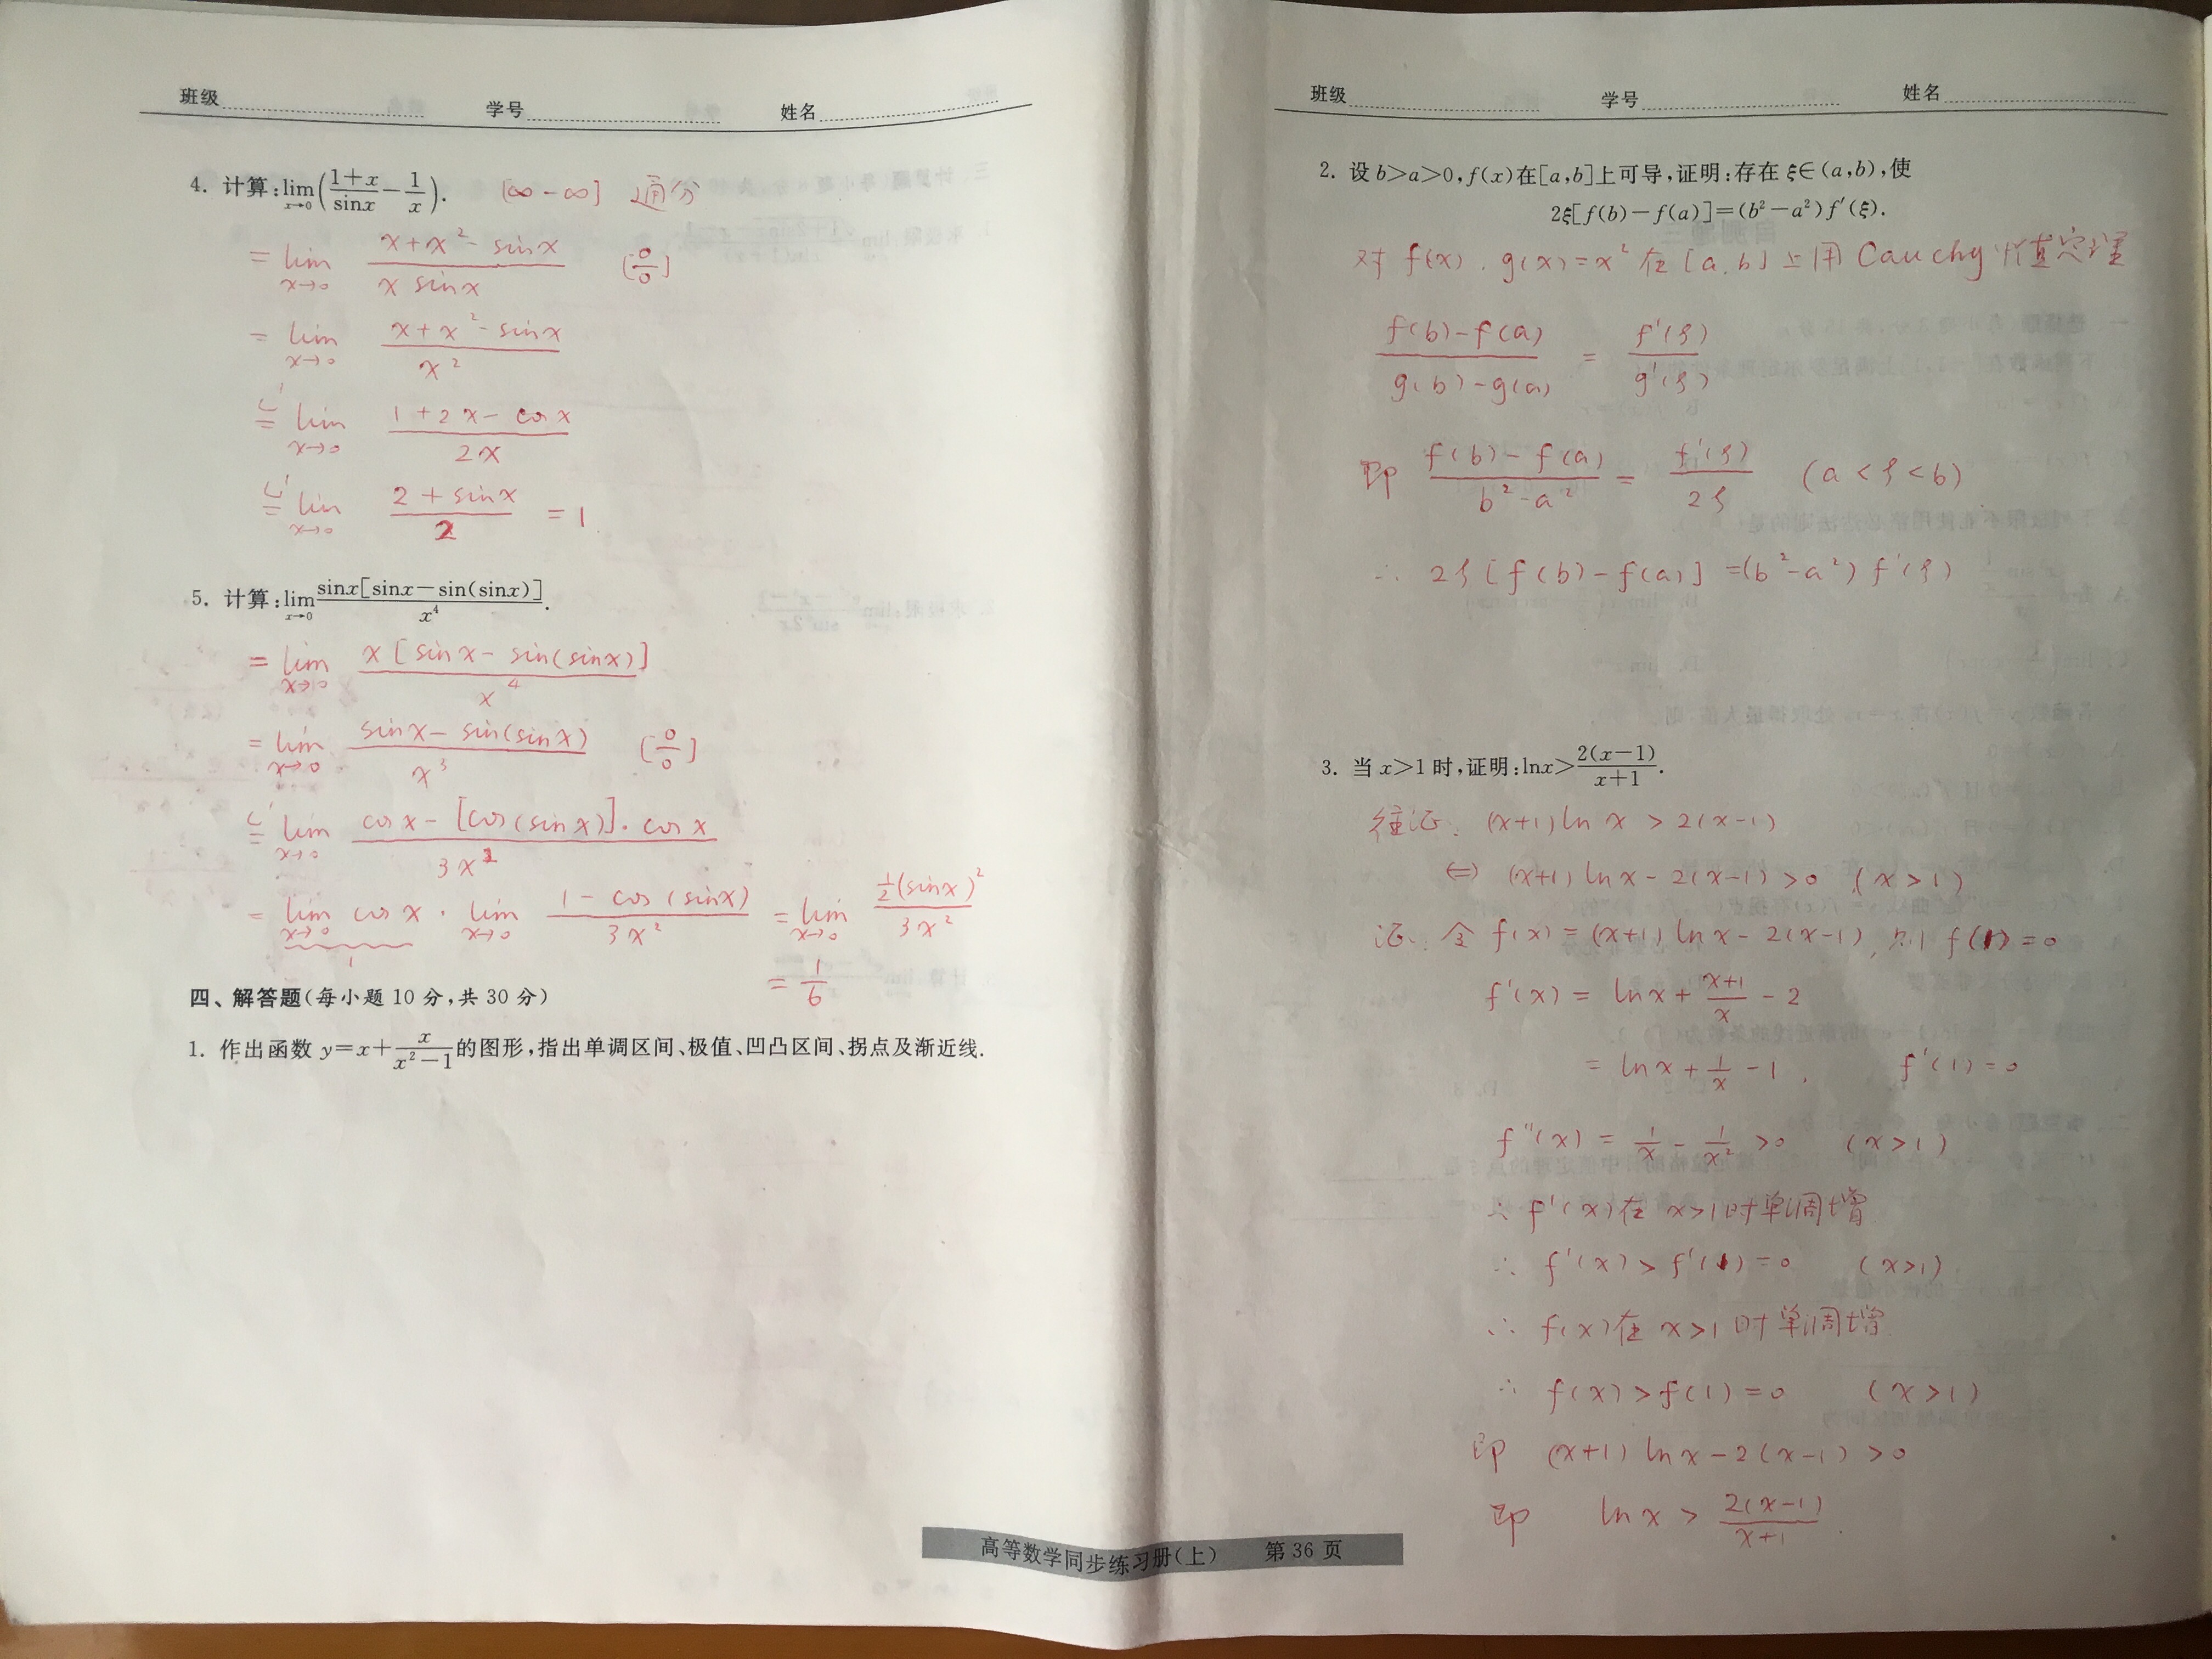 班级 学号 姓名
4. 计算:lim x→0 ((1+x)/sinx − 1/x). [∞−∞] 通分
= lim x→0 (x+x²−sinx)/(x sinx) [0/0]
= lim x→0 (x+x²−sinx)/x²
L' = lim x→0 (1+2x−cosx)/(2x)
L' = lim x→0 (2+sinx)/2 = 1
5. 计算:lim x→0 sinx[sinx−sin(sinx)]/x⁴.
= lim x→0 x[sinx−sin(sinx)]/x⁴
= lim x→0 (sinx−sin(sinx))/x³ [0/0]
L' = lim x→0 (cosx−[cos(sinx)]·cosx)/(3x²)
= lim x→0 cosx · lim x→0 (1−cos(sinx))/(3x²) = lim x→0 (½(sinx)²)/(3x²)
1
= 1/6
四、解答题(每小题 10 分,共 30 分)
1. 作出函数 y=x+x/(x²−1)的图形,指出单调区间、极值、凹凸区间、拐点及渐近线.
班级 学号 姓名
2. 设 b>a>0,f(x)在[a,b]上可导,证明:存在 ξ∈(a,b),使
2ξ[f(b)−f(a)]=(b²−a²)f′(ξ).
对 f(x), g(x)=x² 在[a,b]上用 Cauchy 中值定理
(f(b)−f(a))/(g(b)−g(a)) = f'(ξ)/g'(ξ)
即 (f(b)−f(a))/(b²−a²) = f'(ξ)/(2ξ) (a<ξ<b)
∴ 2ξ[f(b)−f(a)]=(b²−a²)f'(ξ)
3. 当 x>1 时,证明:lnx>2(x−1)/(x+1).
往证: (x+1)lnx > 2(x−1)
⇔ (x+1)lnx−2(x−1)>0 (x>1)
证: 令 f(x)=(x+1)lnx−2(x−1), 则 f(1)=0
f'(x) = lnx+(x+1)/x−2
= lnx+1/x−1, f'(1)=0
f''(x) = 1/x−1/x²>0 (x>1)
∴ f'(x)在 x>1时单调增
∴ f'(x)>f'(1)=0 (x>1)
∴ f(x)在 x>1时单调增
∴ f(x)>f(1)=0 (x>1)
即 (x+1)lnx−2(x−1)>0
即 lnx > 2(x−1)/(x+1).
高等数学同步练习册(上) 第 36 页